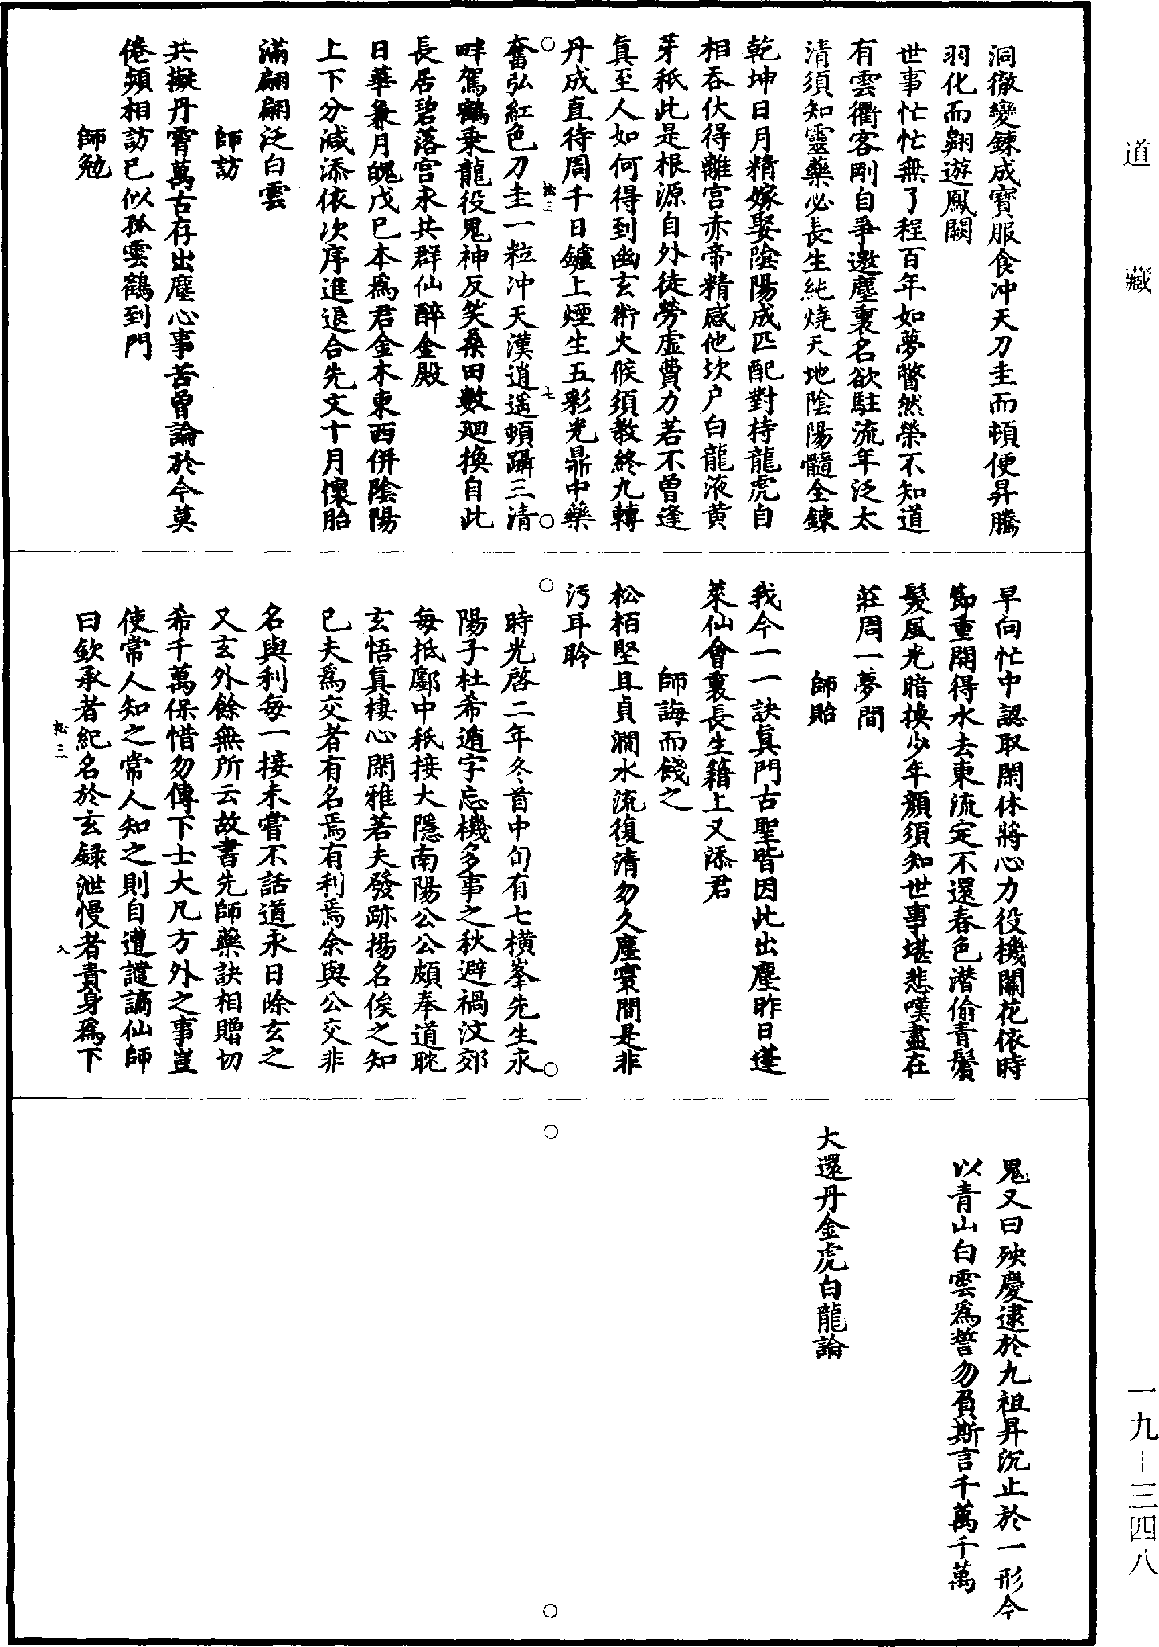 道藏
洞徹變鍊成寶服食冲天刀圭而頓便昇騰
羽化而翱遊鳳闕
世事忙忙無了程百年如夢瞥然榮不知道
有雲衢客剛自爭邀塵裏名欲駐流年泛太
清須知靈藥必長生純燒天地陰陽髓全鍊
乾坤日月精嫁娶陰陽成匹配對持龍虎自
相吞伏得離宮赤帝精感他坎户白龍液黄
芽秖此是根源自外徒勞虛費力若不曾逢
真至人如何得到幽玄術火候須教終九轉
丹成直待周千日鑪上煙生五彩光鼎中藥
奮弘紅色刀圭一粒冲天漢逍遥頓躡三清
畔駕鶴乗龍役鬼神反笑桑田數廻換自此
長居碧落宮永共群仙醉金殿
日華兼月魄戊己本爲君金木東西併陰陽
上下分減添依次序進退合先文十月懷胎
滿翩翩泛白雲
師訪
共擬丹霄萬古存出塵心事苦曾論於今莫
倦頻相訪已似孤雲鶴到門
師勉
早向忙中認取閑休將心力役機關花依時
節重開得水去東流定不還春色潜偷青鬢
髮風光暗換少年顏須知世事堪悲嘆盡在
莊周一夢間
師貽
我今一一訣真門古聖皆因此出塵昨日蓬
萊仙會裏長生籍上又添君
師誨而餞之
松栢堅且貞澗水流復清勿久塵寰間是非
污耳聆
時光啓二年冬首中旬有七横峯先生求
陽子杜希遁字忘機多事之秋避禍汶郊
每抵鄽中秖接大隱南陽公公頗奉道耽
玄悟真棲心閑雅若夫發跡揚名俟之知
已夫爲交者有名焉有利焉余與公交非
名與利每一接未嘗不話道永日除玄之
又玄外餘無所云故書先師藥訣相贈切
希千萬保惜勿傳下士大凡方外之事豈
使常人知之常人知之則自遭譴謫仙師
曰欽承者紀名於玄録泄慢者責身爲下
鬼又曰殃慶逮於九祖昇沉止於一形今
以青山白雲爲誓勿負斯言千萬千萬
大還丹金虎白龍論
一九－三四八